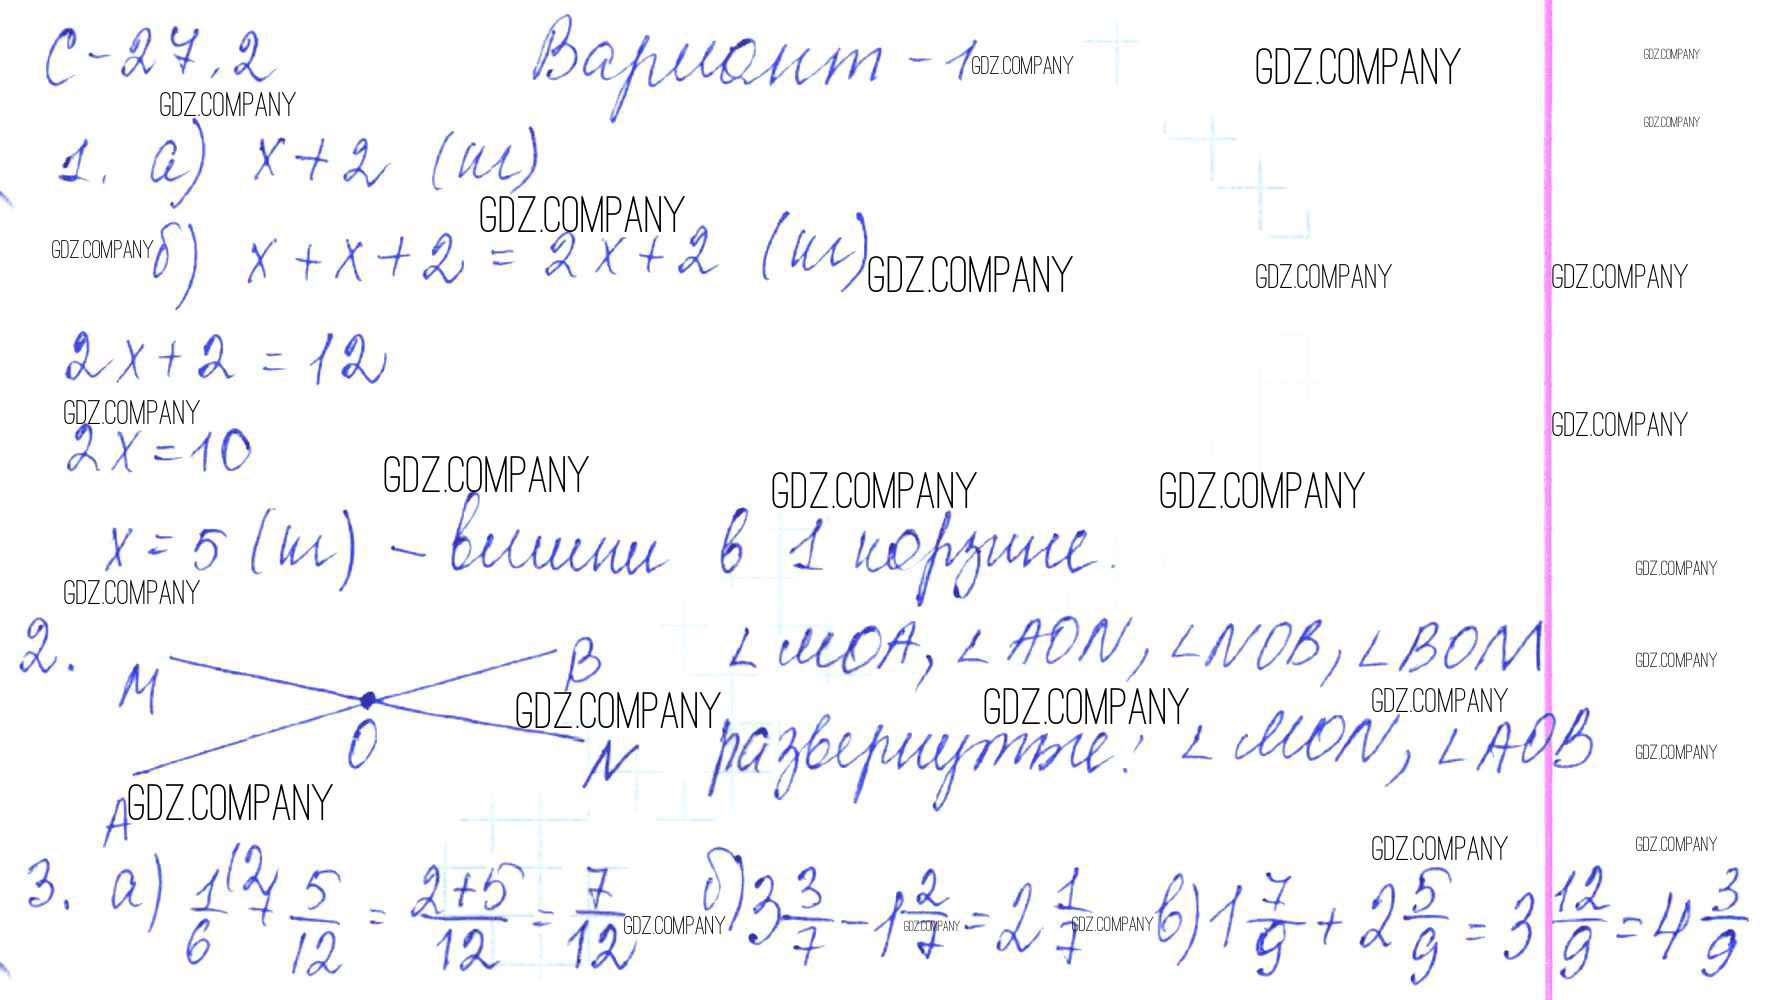 С-27.2 Вариант-1 GDZ.COMPANY GDZ.COMPANY GDZ.COMPANY
GDZ.COMPANY GDZ.COMPANY
1. а) x+2 (кг)
GDZ.COMPANY
GDZ.COMPANY б) x+x+2=2x+2 (кг) GDZ.COMPANY GDZ.COMPANY GDZ.COMPANY
2x+2=12
GDZ.COMPANY GDZ.COMPANY
2x=10
GDZ.COMPANY GDZ.COMPANY GDZ.COMPANY
x=5 (кг) – вишни в 1 корзине.
GDZ.COMPANY GDZ.COMPANY
2. M B ∠MOA, ∠AON, ∠NOB, ∠BOM GDZ.COMPANY
GDZ.COMPANY GDZ.COMPANY GDZ.COMPANY
O N развернутые: ∠MON, ∠AOB GDZ.COMPANY
A GDZ.COMPANY
GDZ.COMPANY GDZ.COMPANY
3. а) 1/6 (2 + 5/12 = 2+5/12 = 7/12 б) 3 3/7 – 1 2/7 = 2 1/7 в) 1 7/9 + 2 5/9 = 3 12/9 = 4 3/9
GDZ.COMPANY GDZ.COMPANY GDZ.COMPANY